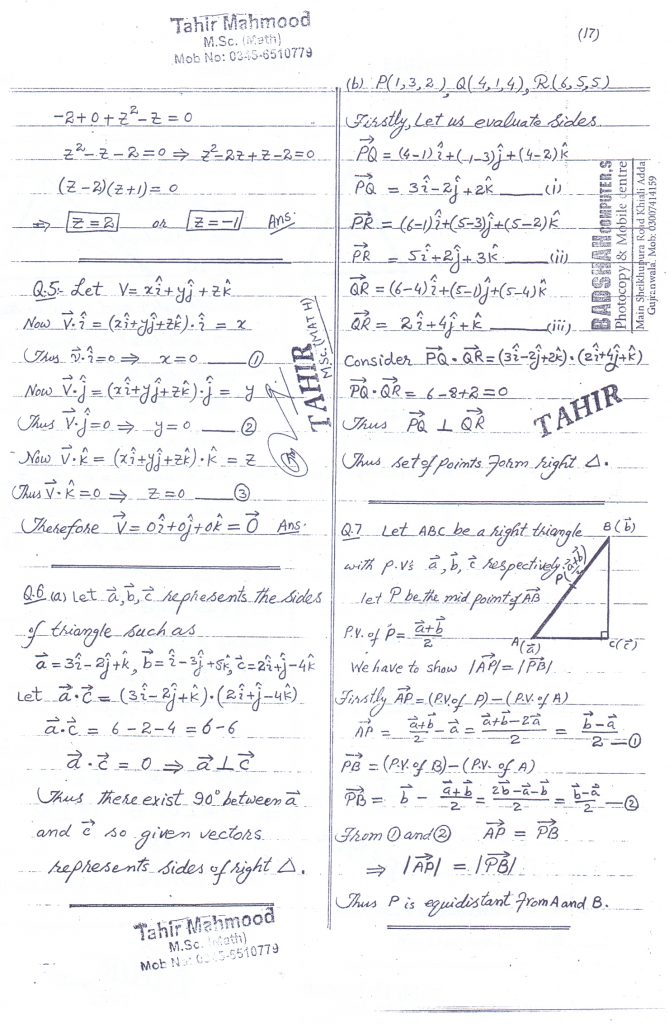 Tahir Mahmood
M.Sc. (Math)
Mob No: 0345-6510779
(17)
-2+0+z²-z=0
z²-z-2=0 ⇒ z²-2z+z-2=0
(z-2)(z+1)=0
⇒ z=2 or z=-1 Ans:
Q.5:- Let V=xî+yĵ+zk̂
Now V⃗·î=(xî+yĵ+zk̂)·î = x
Thus v⃗·î=0 ⇒ x=0 ①
Now V⃗·ĵ=(xî+yĵ+zk̂)·ĵ = y
Thus V⃗·ĵ=0 ⇒ y=0 ②
Now V⃗·k̂=(xî+yĵ+zk̂)·k̂ = z
Thus V⃗·k̂=0 ⇒ z=0 ③
Therefore V⃗=0î+0ĵ+0k̂=0⃗ Ans:
Q.6 (a) Let a⃗,b⃗,c⃗ represents the sides
of triangle such as
a⃗=3î-2ĵ+k̂, b⃗=î-3ĵ+5k̂, c⃗=2î+ĵ-4k̂
Let a⃗·c⃗=(3î-2ĵ+k̂)·(2î+ĵ-4k̂)
a⃗·c⃗ = 6-2-4=6-6
a⃗·c⃗ = 0 ⇒ a⃗⊥c⃗
Thus there exist 90° between a⃗
and c⃗ so given vectors
represents sides of right △.
Tahir Mahmood
M.Sc. (Math)
TAHIR
M.SC.(MATH)
(b) P(1,3,2), Q(4,1,4), R(6,5,5)
Firstly, Let us evaluate sides
PQ⃗=(4-1)î+(1-3)ĵ+(4-2)k̂
PQ⃗ = 3î-2ĵ+2k̂ (i)
PR⃗ = (6-1)î+(5-3)ĵ+(5-2)k̂
PR⃗ = 5î+2ĵ+3k̂ (ii)
QR⃗=(6-4)î+(5-1)ĵ+(5-4)k̂
QR⃗ = 2î+4ĵ+k̂ (iii)
Consider PQ⃗·QR⃗=(3î-2ĵ+2k̂)·(2î+4ĵ+k̂)
PQ⃗·QR⃗= 6-8+2=0
Thus PQ⃗ ⊥ QR⃗
TAHIR
Thus set of points form right △.
BADSHAH COMPUTER,S
Photocopy & Mobile Centre
Main Sheikhupura Road Khiali Adda
Gujranwala. Mob: 03007414159
Q.7 Let ABC be a right triangle
with P.V's a⃗,b⃗,c⃗ respectively.
let P be the mid point of AB⃗
P.V. of P⃗= (a⃗+b⃗)/2
B(b⃗)
P(a⃗+b⃗)/2
A(a⃗)
C(c⃗)
We have to show |AP⃗|=|PB⃗|
Firstly AP⃗=(P.V. of P)-(P.V. of A)
AP⃗ = (a⃗+b⃗)/2 - a⃗ = (a⃗+b⃗-2a⃗)/2 = (b⃗-a⃗)/2 ①
PB⃗=(P.V. of B)-(P.V. of A)
PB⃗= b⃗ - (a⃗+b⃗)/2 = (2b⃗-a⃗-b⃗)/2 = (b⃗-a⃗)/2 ②
From ① and ② AP⃗ = PB⃗
⇒ |AP⃗| = |PB⃗|
Thus P is equidistant from A and B.